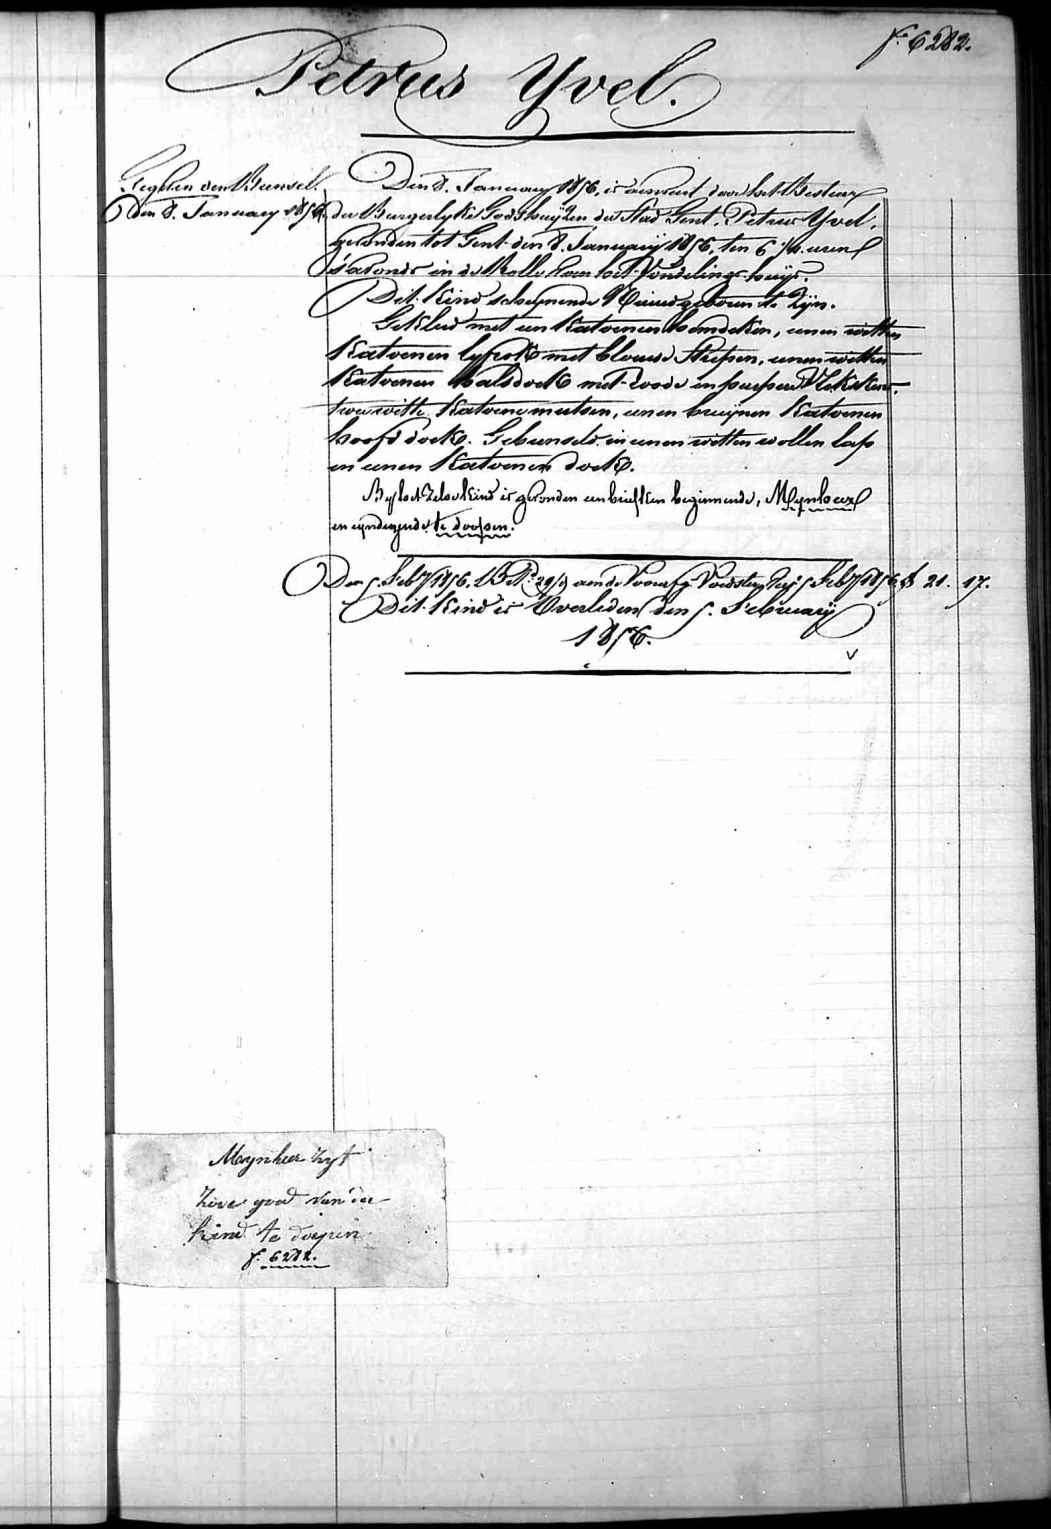 f.º 6282.
Petrus Yvel.
Gegeven den Bunsel.
den 8. January 1856.
Den 8. January 1856, is aenveird door het Bestier
der Burgerlyke Godshuyzen der Stad Gent. Petrus Yvel.
gevonden tot Gent den 8. January 1856, ten 6 ½ uren
s'avonds in de Rolle van het Vondelings-huys.
Dit Kind schynende Nieuwgeboren te Zyn.
Gekleed met een Katoenen hemdeken, eenen witten
Katoenen lyfrok met blauwe Strepen, eenen witten
Katoenen halsdoek met roode en purpere Vlekken,
twee witte Katoene mutsen, eenen bruynen Katoenen
hoofd doek. Gebunseld in eenen witten wollen lap
en eenen Katoenen doek.
By het Zelve Kind is gevonden een briefken beginnende, Mynheer
en eyndegende te doopen.
Den 5 Feb.ry 1856. aen de 5 Feb.ry 1856 21. 17.
Dit Kind is Overleden den 5. February
1856.
Meynheer Zyt
Zoo goed van dee
kind te doopen
f.º 6282.